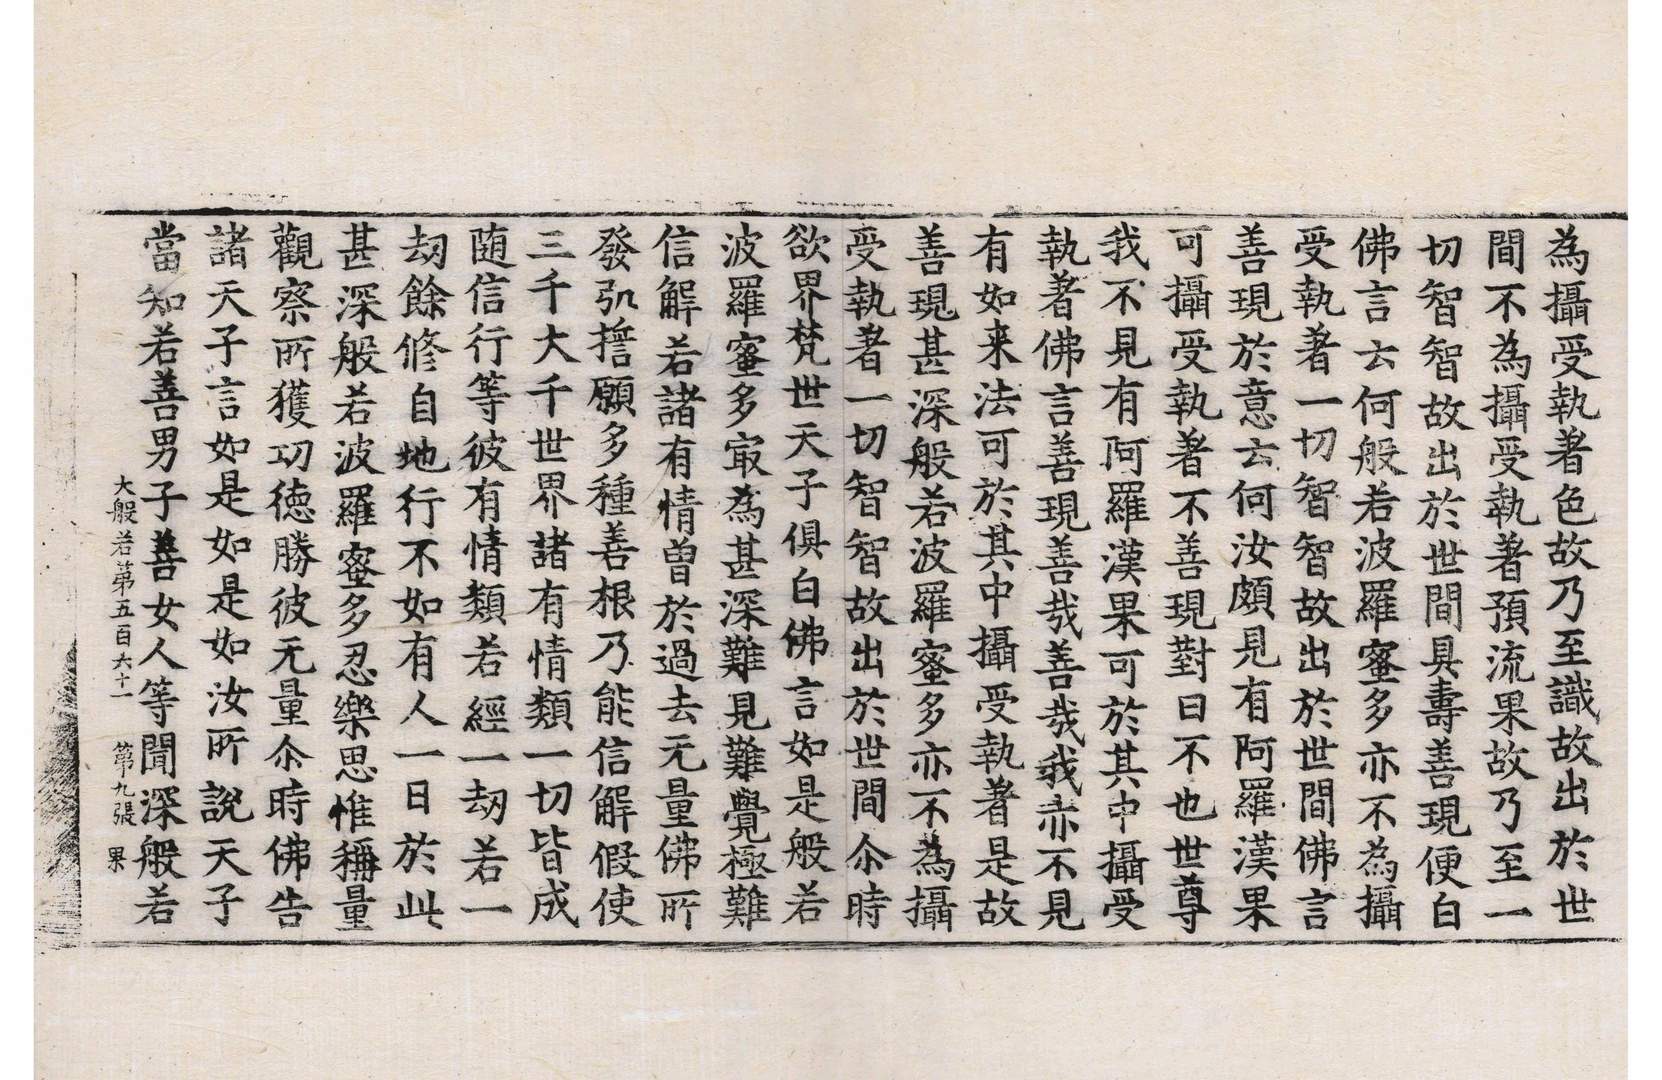 為攝受執著色故乃至識故出於世
間不為攝受執著預流果故乃至一
切智智故出於世間具壽善現便白
佛言云何般若波羅蜜多亦不為攝
受執著一切智智故出於世間佛言
善現於意云何汝頗見有阿羅漢果
可攝受執著不善現對曰不也世尊
我不見有阿羅漢果可於其中攝受
執著佛言善現善哉善哉我亦不見
有如来法可於其中攝受執著是故
善現甚深般若波羅蜜多亦不為攝
受執著一切智智故出於世間尒時
欲界梵世天子俱白佛言如是般若
波羅蜜多㝡為甚深難見難覺極難
信解若諸有情曽於過去无量佛所
發弘誓願多種善根乃能信解假使
三千大千世界諸有情類一切皆成
随信行等彼有情類若經一劫若一
劫餘修自地行不如有人一日於此
甚深般若波羅蜜多忍樂思惟稱量
觀察所獲功德勝彼无量尒時佛告
諸天子言如是如是如汝所說天子
當知若善男子善女人等聞深般若
大般若第五百六十一 第九張 果